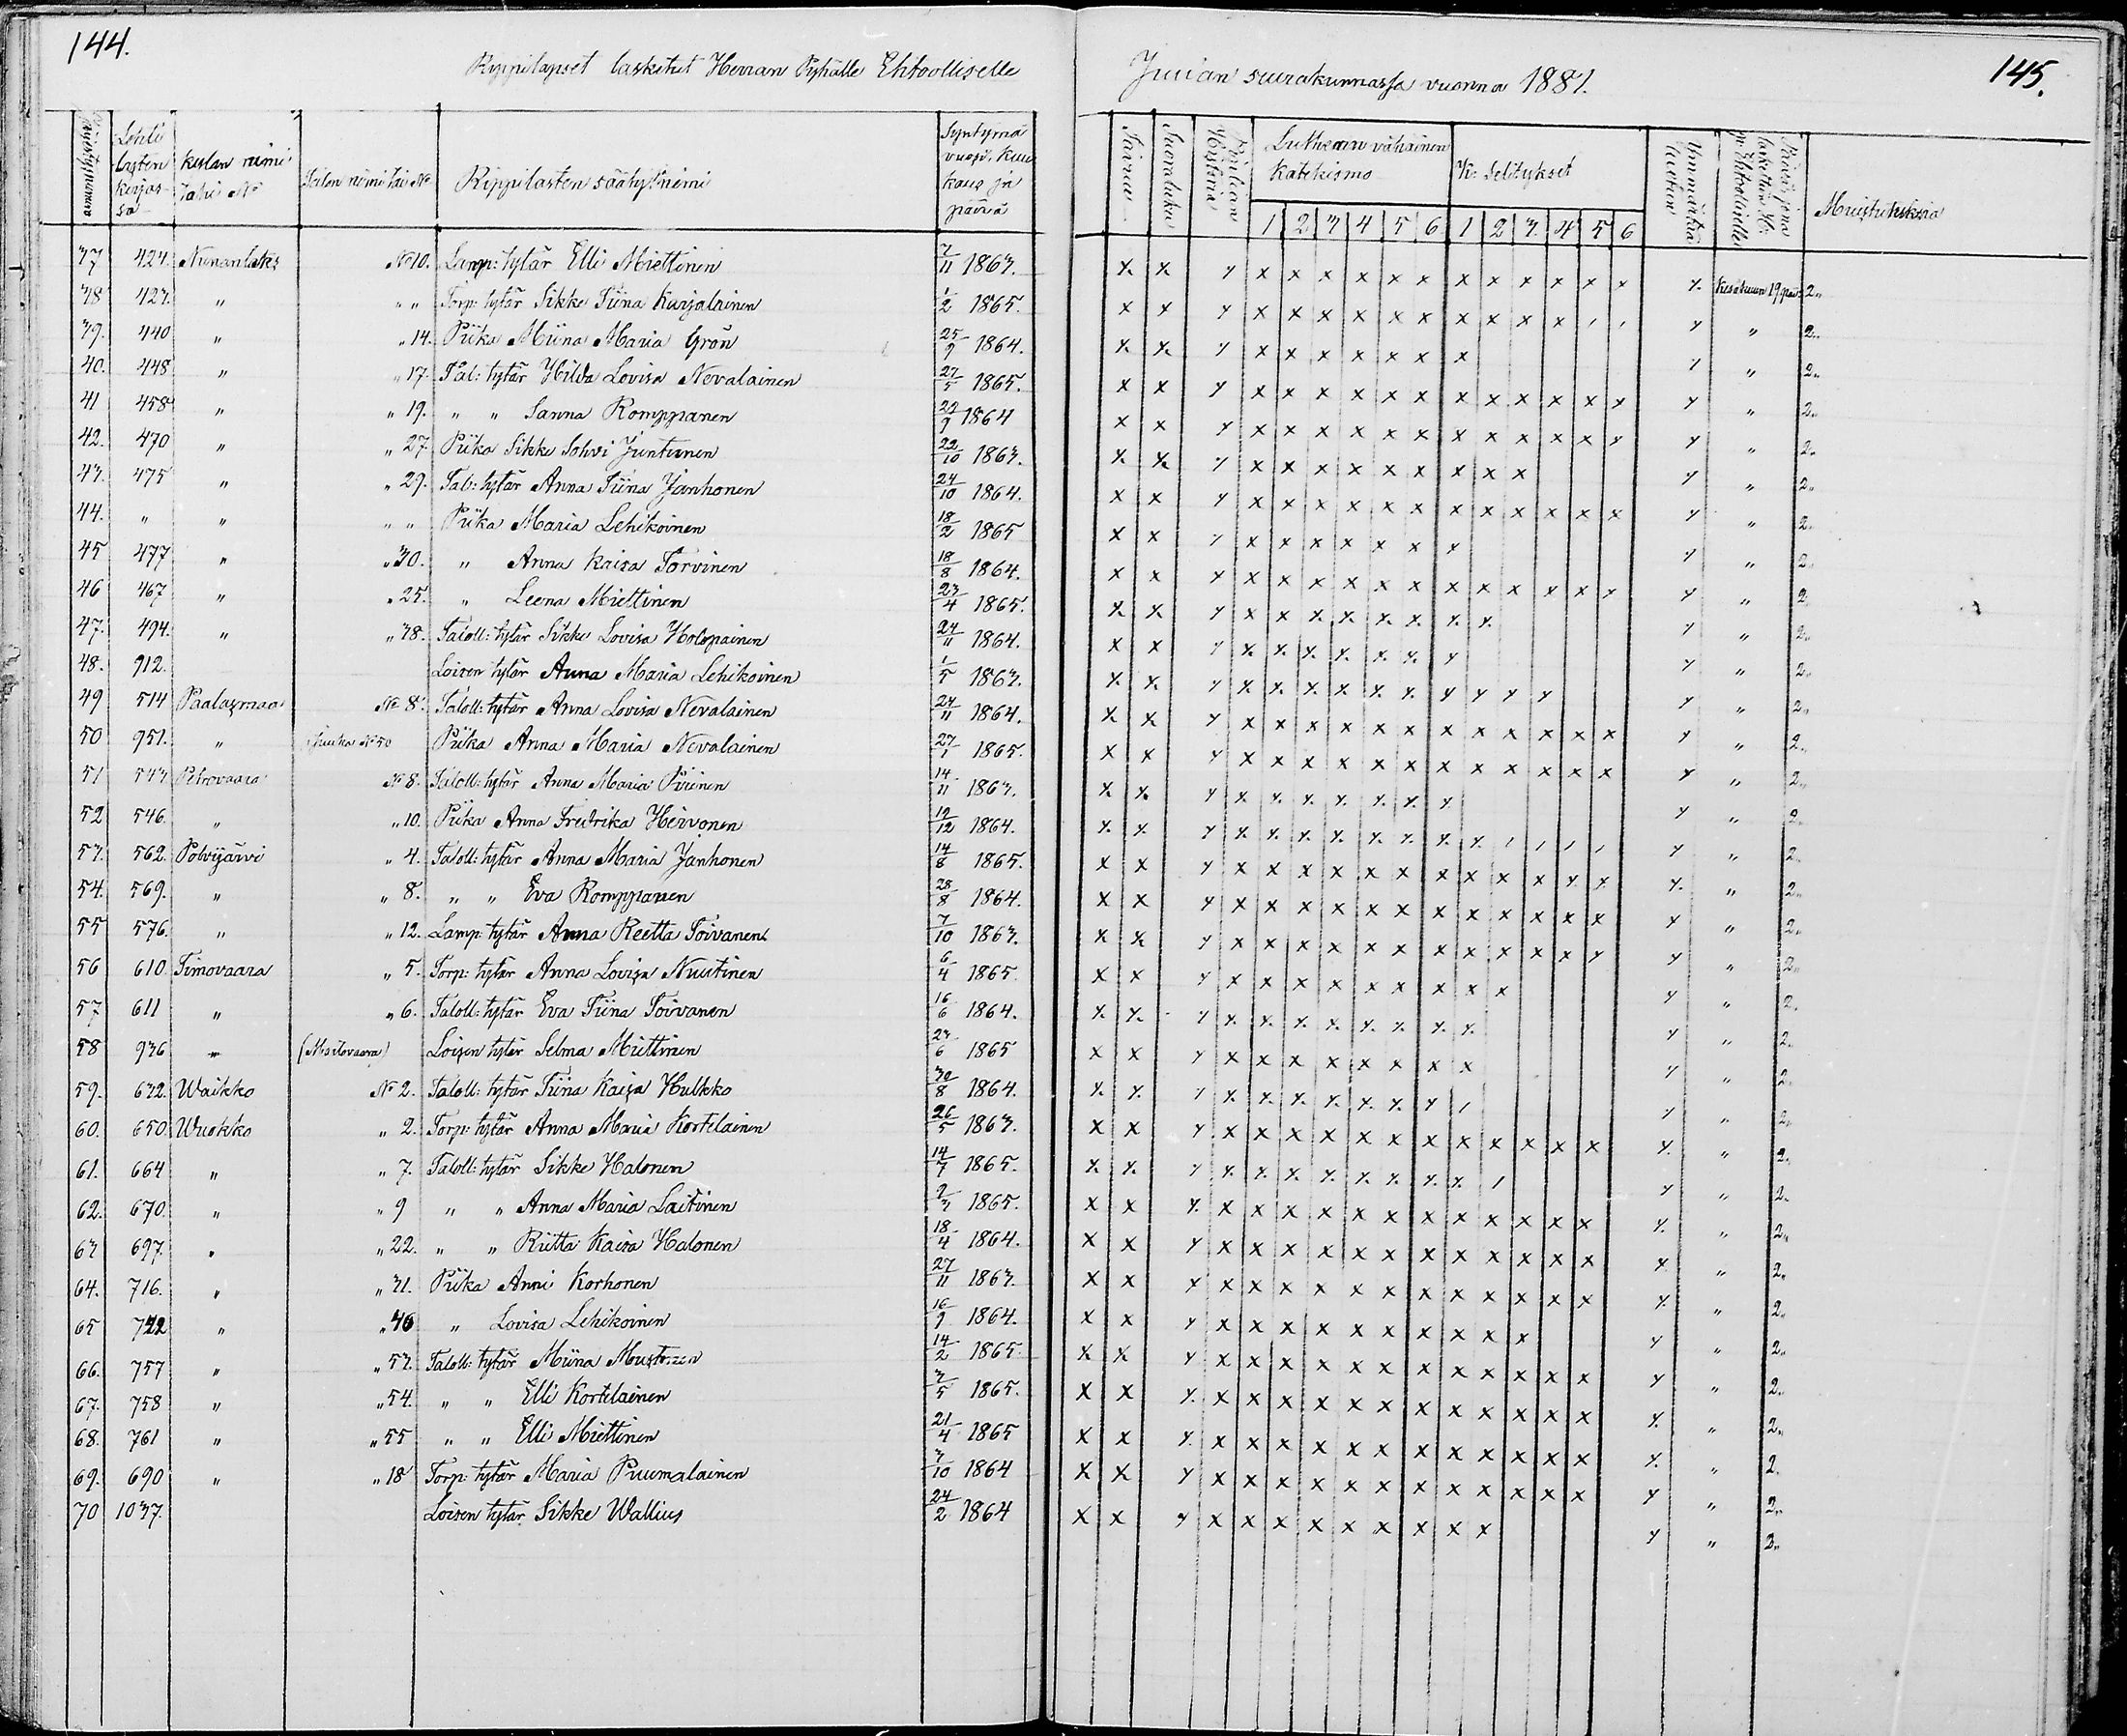 144.
Rippilapset lasketut Herran Pyhälle Ehtoolliselle
Juuan seurakunnassa vuonna 1881.
145.
Lehti lasten kirjassa
kylän nimi tahi No
Talon nimi tai No
Rippilasten sääty & nimi
Syntymä vuosi, kuukaus ja päivä
Sisäluku
Lutheruxen vähäinen Katekismo
K: Selitykset
Ymmärrystä
Muistutuksia
1 2 3 4 5 6 1 2 3 4 5 6
37 424. Nunanlaks No 10. Lamp: tytär Elli Miettinen 7/11 1863. x x y x x x x x x x x x x x x y. Kesäkuun 19 päiv 2.
38 423. " " " Torp: tytär Sikke Tiina Karjalainen 1/2 1865. x x y x x x x x x x x x x / / y " 2.
39. 440 " " 14. Piika Miina Maria Grön 25/9 1864. x x y x x x x x x x y " 2.
40. 448 " " 17. Tal: tytär Hilda Lovisa Nevalainen 27/5 1865. x x y x x x x x x x x x x x x y " 2.
41 458 " " 19. " " Sanna Romppanen 29/9 1864 x x y x x x x x x x x x x x x y " 2.
42. 470 " " 27 Piika Sikke Sohvi Juntunen 22/10 1863. x x y x x x x x x x x x y " 2.
43. 475 " " 29. Tal: tytär Anna Tiina Janhonen 24/10 1864. x x y x x x x x x x x x x x x y " 2.
44. " " " " Piika Maria Lehikoinen 18/2 1865 x x y x x x x x x x y " 2.
45 477 " " 30. " Anna Kaisa Torvinen 18/8 1864. x x y x x x x x x x x x x x x y " 2.
46 467 " " 25. " Leena Miettinen 23/4 1865. x x y x x x x x x x x y " 2.
47. 494. " " 38. Taloll: tytär Sikke Lovisa Holopainen 24/11 1864. x x y x x x x x x x y " 2.
48. 912. Loisen tytär Anna Maria Lehikoinen 1/5 1863. x x y x x x x x x x x x x y " 2.
49 514 Paalasmaa No 8. Taloll: tytär Anna Lovisa Nevalainen 24/11 1864. x x y x x x x x x x x x x x x y " 2.
50 951. " Juuka No 50 Piika Anna Maria Nevalainen 27/1 1865. x x y x x x x x x x x x x x x y " 2.
51 543 Petrovaara No 8. Taloll: tytär Anna Maria Piirinen 14/11 1863. x x y x x x x x x x y " 2.
52 546. " " 10. Piika Anna Fredrika Hirvonen 12/12 1864. x x y x x x x x x x x / / / / y " 2.
53. 562. Polvijärvi " 4. Taloll: tytär Anna Maria Janhonen 14/8 1865. x x y x x x x x x x x x x x x y. " 2.
54. 569. " " 8. " " Eva Romppanen 28/8 1864. x x y x x x x x x x x x x x x y " 2.
55 576. " " 12. Lamp: tytär Anna Reetta Toivanen 7/10 1863. x x y x x x x x x x x x x x x y " 2.
56 610 Timovaara " 5. Torp: tytär Anna Lovisa Nuutinen 6/4 1865. x x y x x x x x x x x x y " 2.
57 611 " " 6. Taloll: tytär Eva Tiina Toivanen 16/6 1864. x x y x x x x x x x x y " 2.
58 936 " (Matovaara) Loisen tytär Selma Miettinen 23/6 1865 x x y x x x x x x x x y " 2.
59. 632. Waikko No 2. Taloll: tytär Tiina Kaisa Hulkko 30/8 1864. x x y x x x x x x x / y " 2.
60. 650. Wuokko " 2. Torp: tytär Anna Maria Kortelainen 26/5 1863. x x y x x x x x x x x x x x x y. " 2.
61. 664 " " 7. Taloll: tytär Sikke Halonen 14/7 1865. x x y x x x x x x x x / y " 2.
62. 670. " " 9 " " Anna Maria Laitinen 2/3 1865. x x y x x x x x x x x x x x x y. " 2.
63 697. " " 22. " " Riitta Kaisa Halonen 18/4 1864. x x y x x x x x x x x x x x x y. " 2.
64. 716. " " 31. Piika Anni Korhonen 27/11 1863. x x y x x x x x x x x x x x x y. " 2.
65 742 " " 46 " Lovisa Lehikoinen 16/9 1864. x x y x x x x x x x x x x y " 2.
66. 757 " " 53. Taloll: tytär Miina Mustonen 14/2 1865. x x y x x x x x x x x x x x x y " 2.
67. 758 " " 54. " " Elli Kortelainen 3/5 1865. x x y x x x x x x x x x x x x y. " 2.
68. 761 " " 55 " " Elli Miettinen 21/4 1865 x x y x x x x x x x x x x x x y. " 2.
69. 690 " " 18 Torp: tytär Maria Puumalainen 3/10 1864 x x y x x x x x x x x x x x x y " 2.
70 1037. Loisen tytär Sikke Wallius 24/2 1864 x x y x x x x x x x x x y " 2.